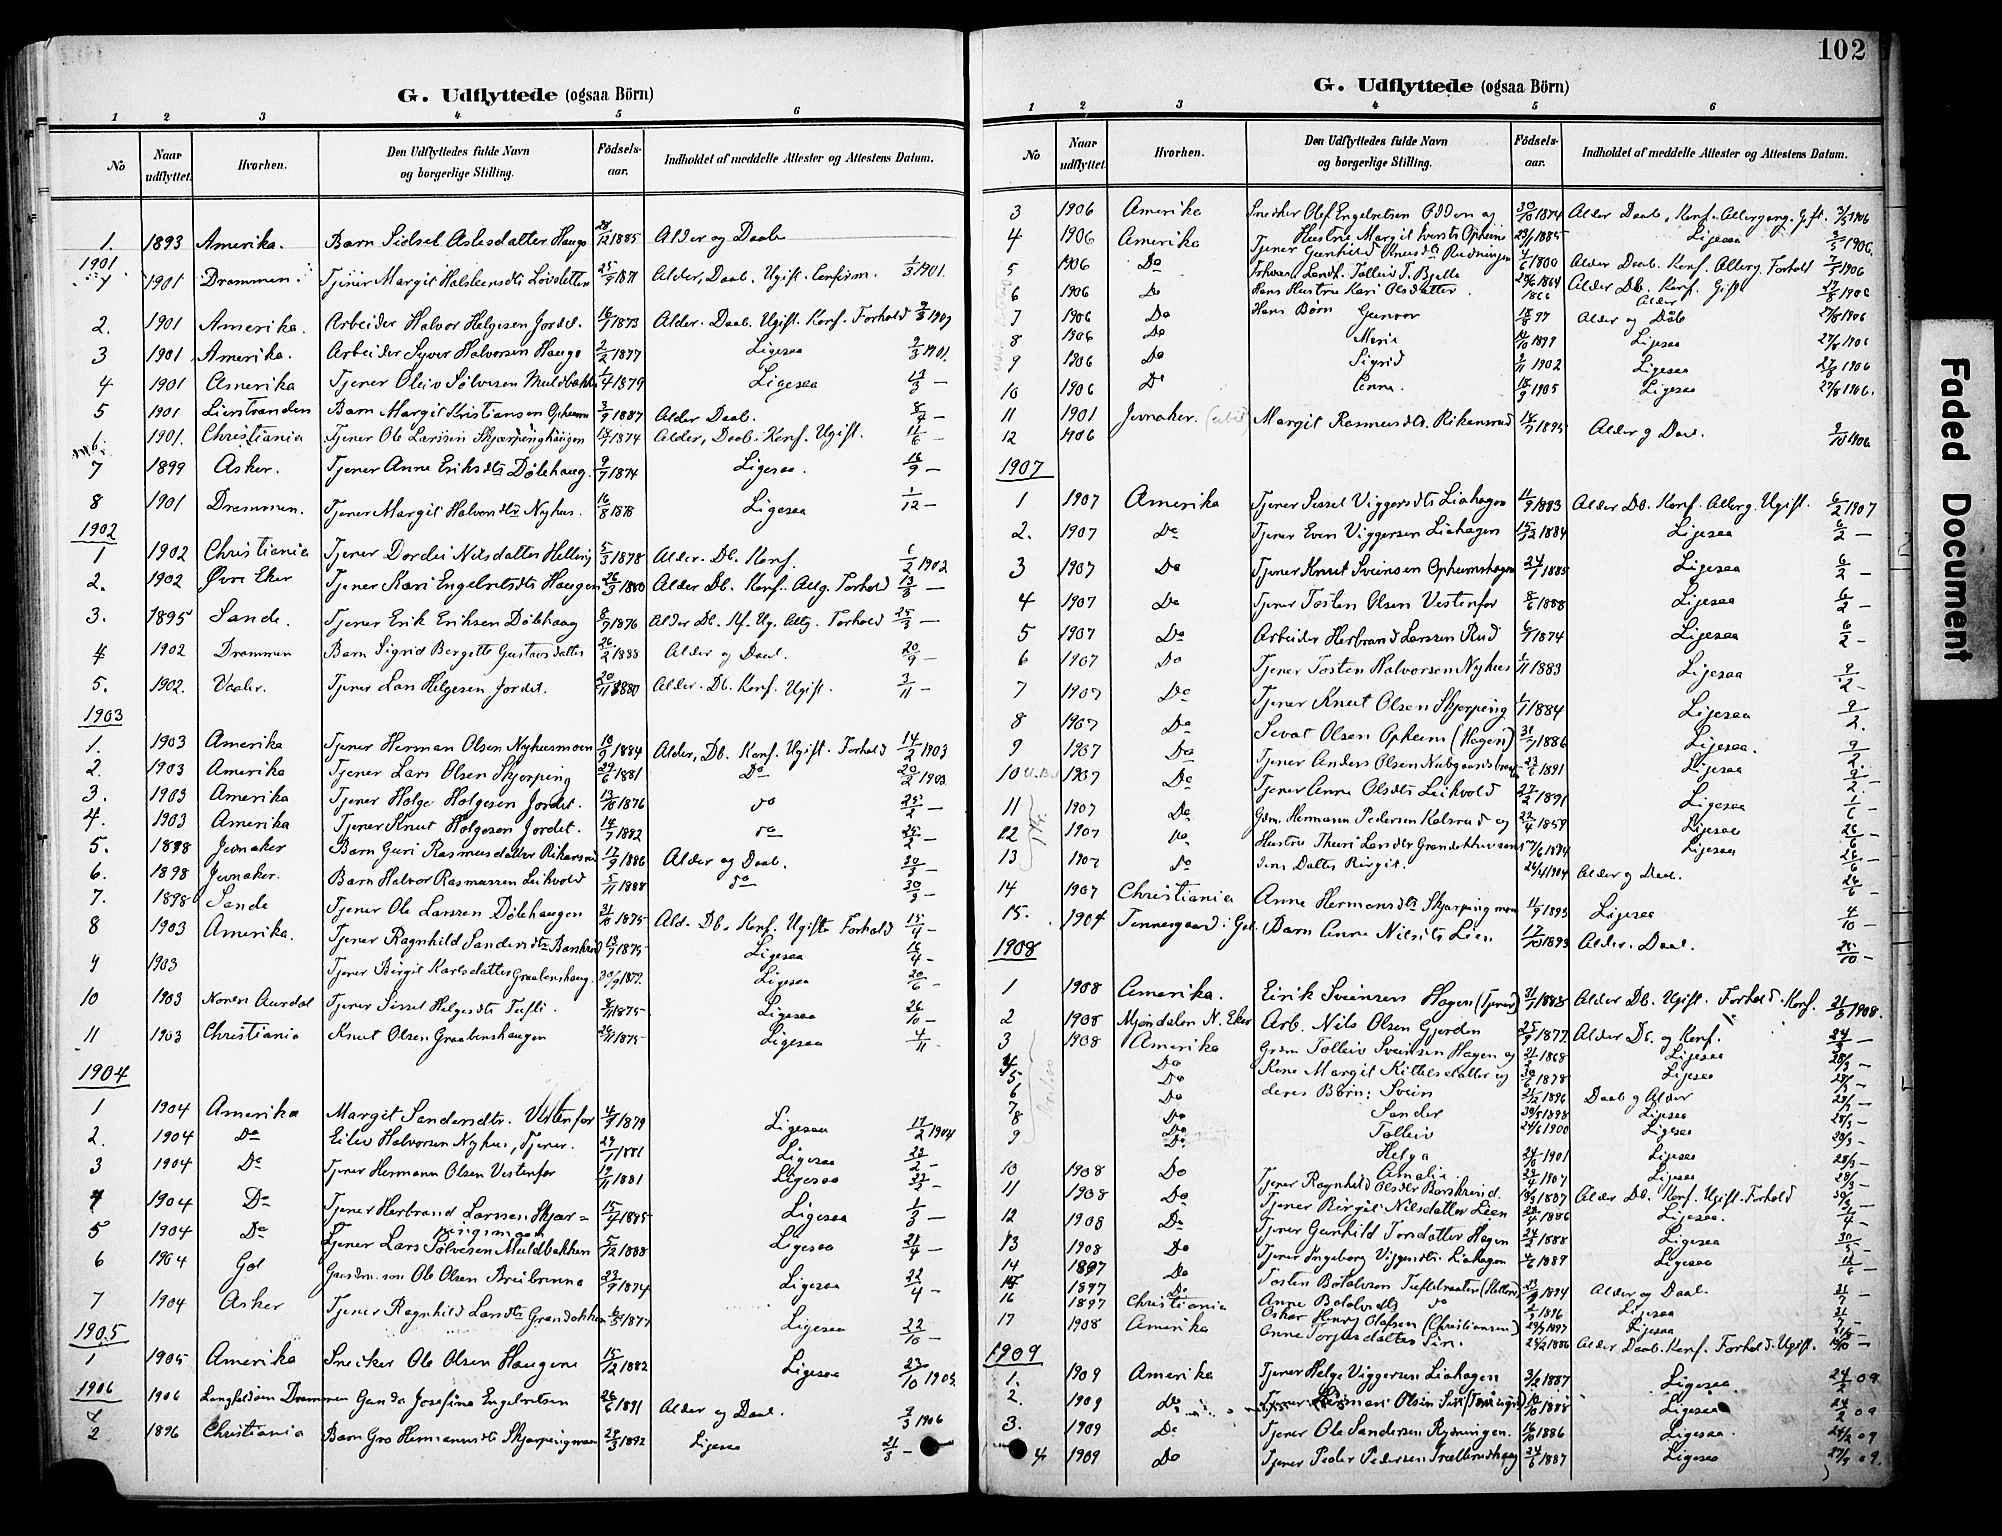 G. Udflyttede (ogsaa Börn)
1 2 3 4 5 6
No Naar udflyttet. Hvorhen. Den Udflyttedes fulde Navn og borgerlige Stilling. Födsels-aar. Indholdet af meddelte Attester og Attestens Datum.
1. 1893 Amerika. Barn Sidsel Aslesdatter Haugs 28/12 1885 Alder og Daab
1901.
1 1901 Drammen. Tjener Margit Halsteensdtr 25/9 1871 Alder, Daab. Ugift. Confirm. 1/3 1901.
2. 1901 Amerika. Arbeider Halvor Helgesen Jordet. 16/7 1873 Alder. Daab. Ugift. Konf. Forhold
3 1901 Amerika. Arbeider Syver Halvorsen Haugs 2/2 1877 Ligesaa 9/3 1901.
4 1901 Amerika Tjener Oleiv Sølvesen Muldbakk 1/4 1879 Ligesaa 13/3 —
5 1901 Lierstranden Barn Margit Kristiansen Opheim 3/9 1887 Alder Daab. 8/4 —
6. 1901. Christiania Tjener Ole Larssen 1874 Alder, Daab. Konf. Ugift. 11/6 —
7 1899 Asker. Tjener Anne Eriksdtr Dölehaug 9/9 1874 Ligesaa. 16/9 —
8 1901 Drammen. Tjener Margit Halvorsdtr Nyhus. 16/8 1878 Ligesaa 1/12 —
1902
1 1902 Christiania Tjener Dordei Nilsdatter 5/3 1878 Alder. Db. Konf. 6/2 1902
2. 1902 Øvre Eker Tjener Kari Engelretsdtr Haugen 26/3 1880 Alder Db. Konf. Attg. Forhold 13/3 —
3. 1895 Sande. Tjener Erik Eriksen Dölehaug 8/7 1876 Alder Db. Kf. Ug. Attg. Forhold 25/3 —
4 1902 Drammen Barn Sigrid Bergette Gustavsdatter 26/2 1888 Alder og Daab. 20/9 —
5. 1902. Vaaler. Tjener Lars Helgesen Jordet. 20/11 1880 Alder. Db. Konf. Ugift. 3/11 —
1903
1. 1903 Amerika Tjener Herman Olsen Nyhusmoen 10/9 1884 Alder, Db. Konf. Ugift. Forhold 14/2 1903
2. 1903 Amerika Tjener Lars Olsen Skjerping 29/6 1881 Do 20/2 1903.
3. 1903 Amerika Tjener Helge Helgesen Jordet. 13/10 1876 do 25/2 —
4. 1903 Amerika Tjener Knut Helgesen Jordet. 14/7 1882 do 25/2 —
5. 1898 Jevnaker Barn Guri Rasmusdatter 17/9 1886 Alder og Daab. 30/3 —
6. 1898 Jevnaker. Barn Halvor Rasmussen Leikvold 5/11 1888 do 30/3 —
7. 1898 Sande Tjener Ole Larssen Dölehaugen 31/10 1875
8 1903 Amerika. Tjener Ragnhild Sandersdtr 13/7 1875 Ald. Db. Konf. Ugifte Forhold 15/4 —
9 1903 Tjener Birgit Karlsdatter 30/9 1879. Ligesaa 16/4 —
Ligesaa 20/6 —
10 1903 Nordre Aurdal Tjener Sissel Helgesdtr Tufti. 1875 Ligesaa 26/10 —
11 1903 Christiania Knut Olsen Graabenshaugen 26/11 1875 Ligesaa 4/11 —
1904
1 1904 Amerika Margit Sandersdtr. Vestenfor 4/9 1879 Ligesaa 17/2 1904
2. 1904 Do Eiliv Halvorsen Nyhus, Tjener. 29/7 1881 Ligesaa 22/2 —
3 1904 Do Tjener Hermann Olsen Vestenfor 19/11 1881 Ligesaa 22/2 —
4 1904 Do Tjener Herbrand Larssen Skjær= 15/4 1885 Ligesaa 1/3 —
pingmoen
5 1904 Do Tjener Lars Sølvesen Muldbakken 5/12 1888 Ligesaa 21/4 —
6 1904 Gol Gaardm. søn Ole Olsen Breibrenna 23/9 1874 Ligesaa 22/4 —
7 1904 Asker Tjener Ragnhild Larsdtr Grandokken 6/5 1877 Ligesaa 22/10 —
1905
1 1905 Amerika Snedker Ole Olsen Haugene 15/12 1882 Ligesaa 23/10 1905.
1906
1 1906 Drammen Ganda Josefine Engelretsen 26/6 1891 Alder og Daab. 9/3 1906
2 1896 Christiania Barn Gro Hermannsdtr Skjerpingmoen 28/3 1892 Ligesaa 21/3 —
102
G. Udflyttede (ogsaa Börn)
1 2 3 4 5 6
No Naar udflyttet. Hvorhen. Den Udflyttedes fulde Navn og borgerlige Stilling. Födsels-aar. Indholdet af meddelte Attester og Attestens Datum.
3 1906 Amerika Snedker Olef Engelretsen Odden og 30/10 1874 Alder Daab, Konf. Gift. 3/5 1906
4 1906 Amerika Hustru Margit Iversts Opheim 23/1 1885 Ligesaa 3/5 1906.
5 1906 Do Tjener Gunhild Knutsdtr Rudningen 4/6 1880 Alder Daab. Konf. Allerg. Forhold 7/5 1906
6 1906 Do Forhv. Landh. Tolleiv T. Bjella 1864 Alder Db. Konf. Gift 27/8 1906
Hans Hustru Kari Olsdatter. 1866 Alder
7 1906 Do Hans Børn Gunvor 18/8 97 Alder og Dåb 27/8 1906
8 1906 Do Maria 14/10 1899 Ligesaa 27/8 1906
9 1906 Do Sigrid 9/11 1902 Ligesaa 27/8 1906
10 1906 Do Anna. 18/9 1905 Ligesaa 27/8 1906.
11 1901 Jevnaker. Margit Rasmusdtr. Rikansrud 18/7 1895 Alder og Daab. 9/10 1906
12 1906
1907
1 1907 Amerika Tjener Sissel Viggersdtr Liahagen 11/9 1883 Alder Db. Konf. Allerg. Ugift. 6/2 1907
2. 1907 Do Tjener Even Viggersen Liahagen 15/12 1884 Ligesaa 6/2 —
3 1907 Do Tjener Knut Sveinsen Opheimshagen 24/1 1885 Ligesaa 6/2 —
4 1907 Do Tjener Tosten Olsen Vestenfor 8/6 1888 Ligesaa 6/2 —
5 1907 Do Arbeider Herbrand Larssen Rud 6/7 1874 Ligesaa 6/2 —
6 1907 Do Tjener Tosten Halvorsen Nyhus 1/11 1883 Ligesaa 9/2 —
7 1907 Do Tjener Knut Olsen Skjerping 1/7 1884 Ligesaa 9/2.
8 1907 Do Sevat Olsen Opheim (Hagen) 31/7 1886 Ligesaa. 9/2.
9 1907 Do Tjener Anders Olsen 23/6 1891 Ligesaa 9/2. —
10 1907 Do Tjener Anne Olsdtr Leikvold 27/2 1891 Ligesaa 1/6 —
11 1907 Do Gdm. Hermann Pedersen Kolsrud og 22/4 1859 Ligesaa 26/6 —
12 1907 Do Hustru Thuri Larsdtr 1874 Ligesaa 26/6 —
13 1907 Do dens Datter Birgit. 24/4 1904 Alder og Daab. 26/6 —
14 1907 Christiania Anne Hermansdtr Skjerpingmoen 11/9 1893 Ligesaa 4/10 —
15. 1904 Tennesgaard i Gol. Barn Anne Nilsdtr Lien 17/10 1893 Alder. Daab. 25/10 —
1908
1 1908 Amerika. Eirik Sveinsen Hagen (Tjener) 21/7 1883 Alder Db. Ugift. Forhold. Konf. 21/3 1908.
2 1908 Mjøndalen N. Eker Arb. Nils Olsen Gjerden 25/9 1877. Alder Db. og Konf. 24/3 —
3 1908 Amerika Grdm Tolleiv Sveinsen Hagen og 21/1 1868 Ligesaa 28/3 —
4 Do Kone Margit Kittelsdatter og 30/6 1878 Ligesaa 28/3 —
5 Do deres Børn: Svein 21/2 1896 Daab og Alder 28/3 —
6 Do Sander 30/5 1898 Ligesaa 28/3 —
7 Do Tolleiv 24/6 1900 Ligesaa 28/3 —
8 Do Helga 24/10 1901 Ligesaa 28/3 —
9 Do Amalie 22/4 1907 Ligesaa 28/3 —
10 1908 Do Tjener Ragnhild Olsdtr Barskrind. 18/3 1887 Alder Db. Konf. Ugift. Forhold 30/3 —
11 1908 Do Tjener Birgit Nilsdatter Lien 22/4 1886 Ligesaa. 1/4 —
12 1908 Do Tjener Gunhild Torsdatter Hagen 24/2 1888 Ligesaa 30/5 —
13 1908 Do Tjener Ingeborg Viggersdtr. Liahagen 4/6 1889 Ligesaa 12/6 —
14 1897 Do Tosten Botolvson 1894 Alder og Daab. 31/7 —
15 1897 Do Anne Botolvsdtr do 1896 Ligesaa 31/7 —
16 1897 Christiania Oskar Henry Olafsen (Christiansen) 29/7 1897 Ligesaa
17 1908 Amerika Anne Torjesdatter Sin. 24/2 1886 Alder Daab. Konf. Forhold. Ugift. 19/10 —
1909
1. 1909 Amerika Tjener Helge Viggersen Liahagen 3/2 1887 Ligesaa 24/2 09
2. 1909 Do Tjener Herman Olsen 10/10 1888 Ligesaa 24/2 09
3. 1909 Do Tjener Ole Sandersen Rydningen. 16/10 1886 Ligesaa. 24/2 09
4 1909 Do Tjener Peder Pedersen 24/6 1887 Ligesaa 27/9 09.
Faded Document